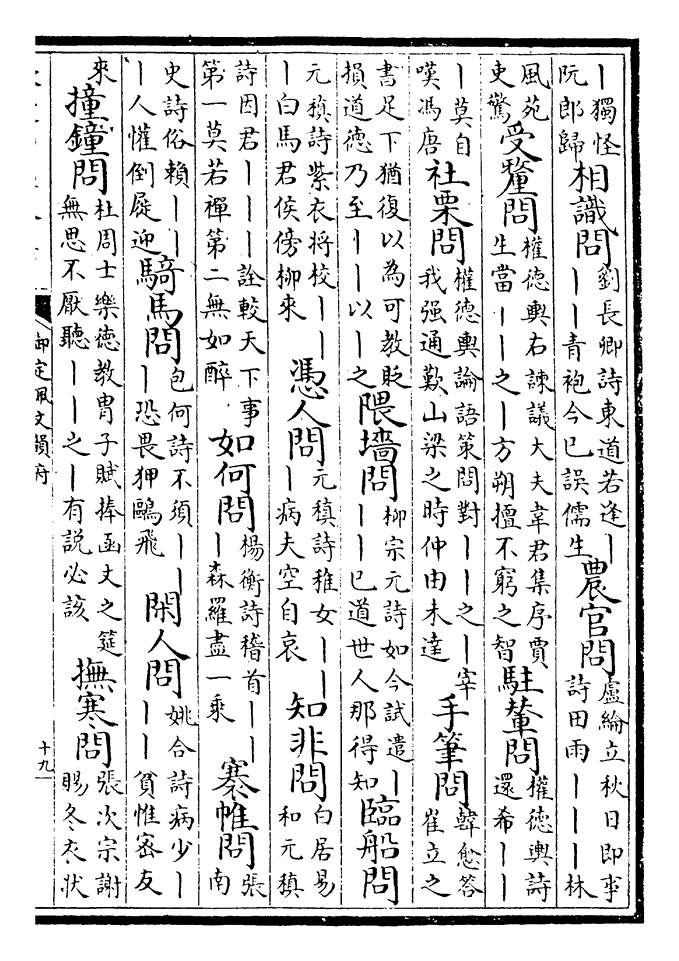 丨獨怪阮郎歸 相識問 劉長卿詩東道若逢丨丨丨青袍今已誤儒生 農官問 盧綸立秋日即事詩田雨丨丨丨林
風苑吏驚 受釐問 權德輿右諫議大夫韋君集序賈生當丨丨之丨方朔擅不窮之智 駐輦問 權德輿詩還希丨丨
丨莫自嘆馮唐 社栗問 權德輿論語策問對丨丨之丨宰我强通歎山梁之時仲由未達 手筆問 韓愈答崔立之
書足下猶復以為可教貶損道德乃至丨丨以丨之 隈墻問 柳宗元詩如今試遣丨丨丨已道世人那得知 臨船問
元稹詩紫衣將校丨丨丨白馬君侯傍柳來 憑人問 元稹詩稚女丨丨丨病夫空自哀 知非問 白居易和元稹
詩因君丨丨丨詮較天下事第一莫若禪第二無如醉 如何問 楊衡詩稽首丨丨丨森羅盡一乘 褰帷問 張南
史詩俗賴丨丨丨人懽倒屣迎 騎馬問 包何詩不須丨丨丨恐畏狎鷗飛 閑人問 姚合詩病少丨丨丨貧惟密友
來 撞鐘問 杜周士樂德教胄子賦捧函丈之筵無思不厭聽丨丨之丨有説必該 撫寒問 張次宗謝賜冬衣狀
御定佩文韻府
十九